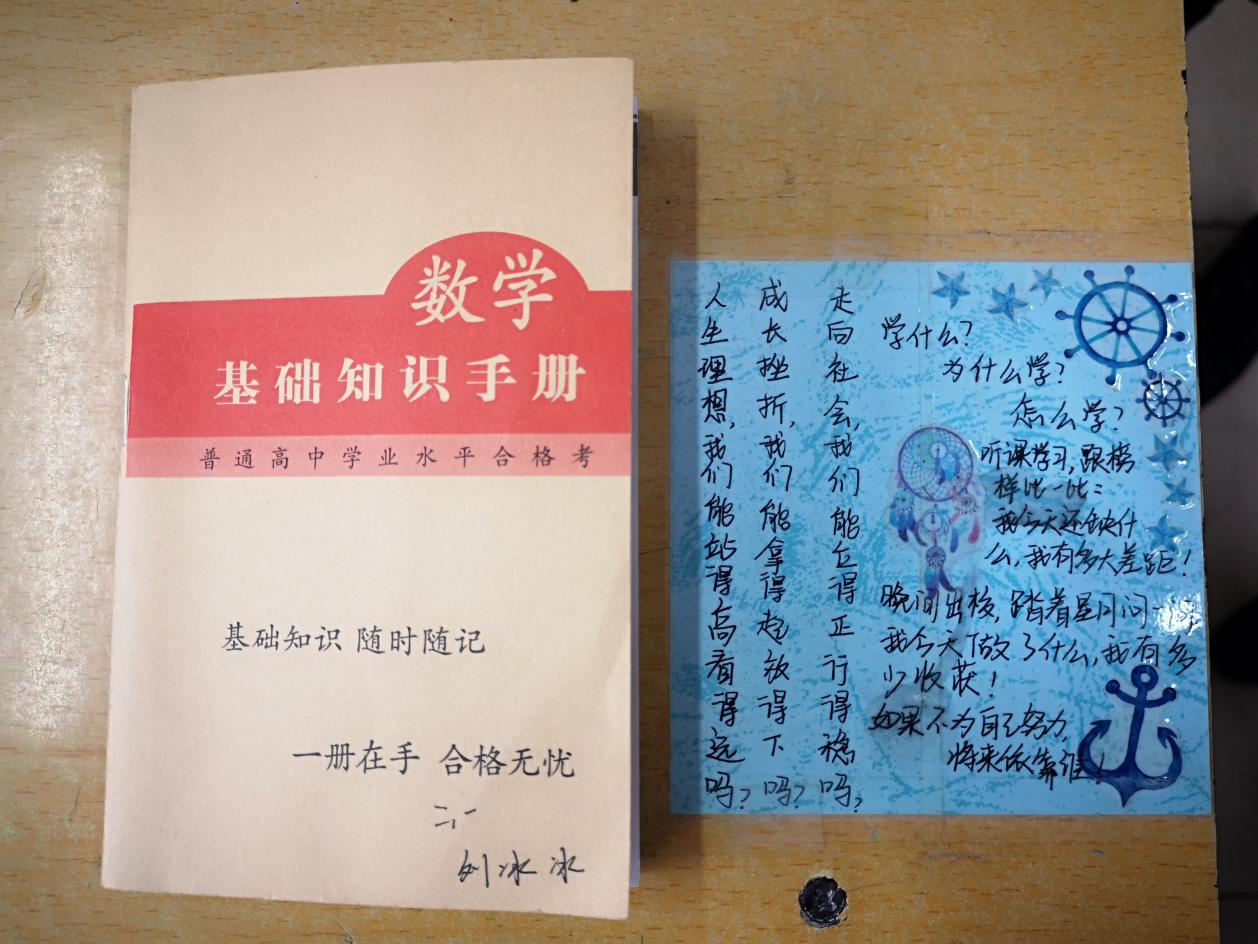 数学
基础知识手册
普通高中学业水平合格考
基础知识 随时随记
一册在手 合格无忧
二,一
刘冰冰
人生理想,我们能站得高看得远吗?
成长挫折,我们能拿得起放得下吗?
走向社会,我们能立得正行得稳吗?
学什么?
为什么学?
怎么学?
听课学习,跟榜
样比一比:
我今天还缺什
么,我有多大差距!
晚间出校,踏着星月问一问,
我今天做了什么,我有多
少收获!
如果不为自己努力,
将来依靠谁!